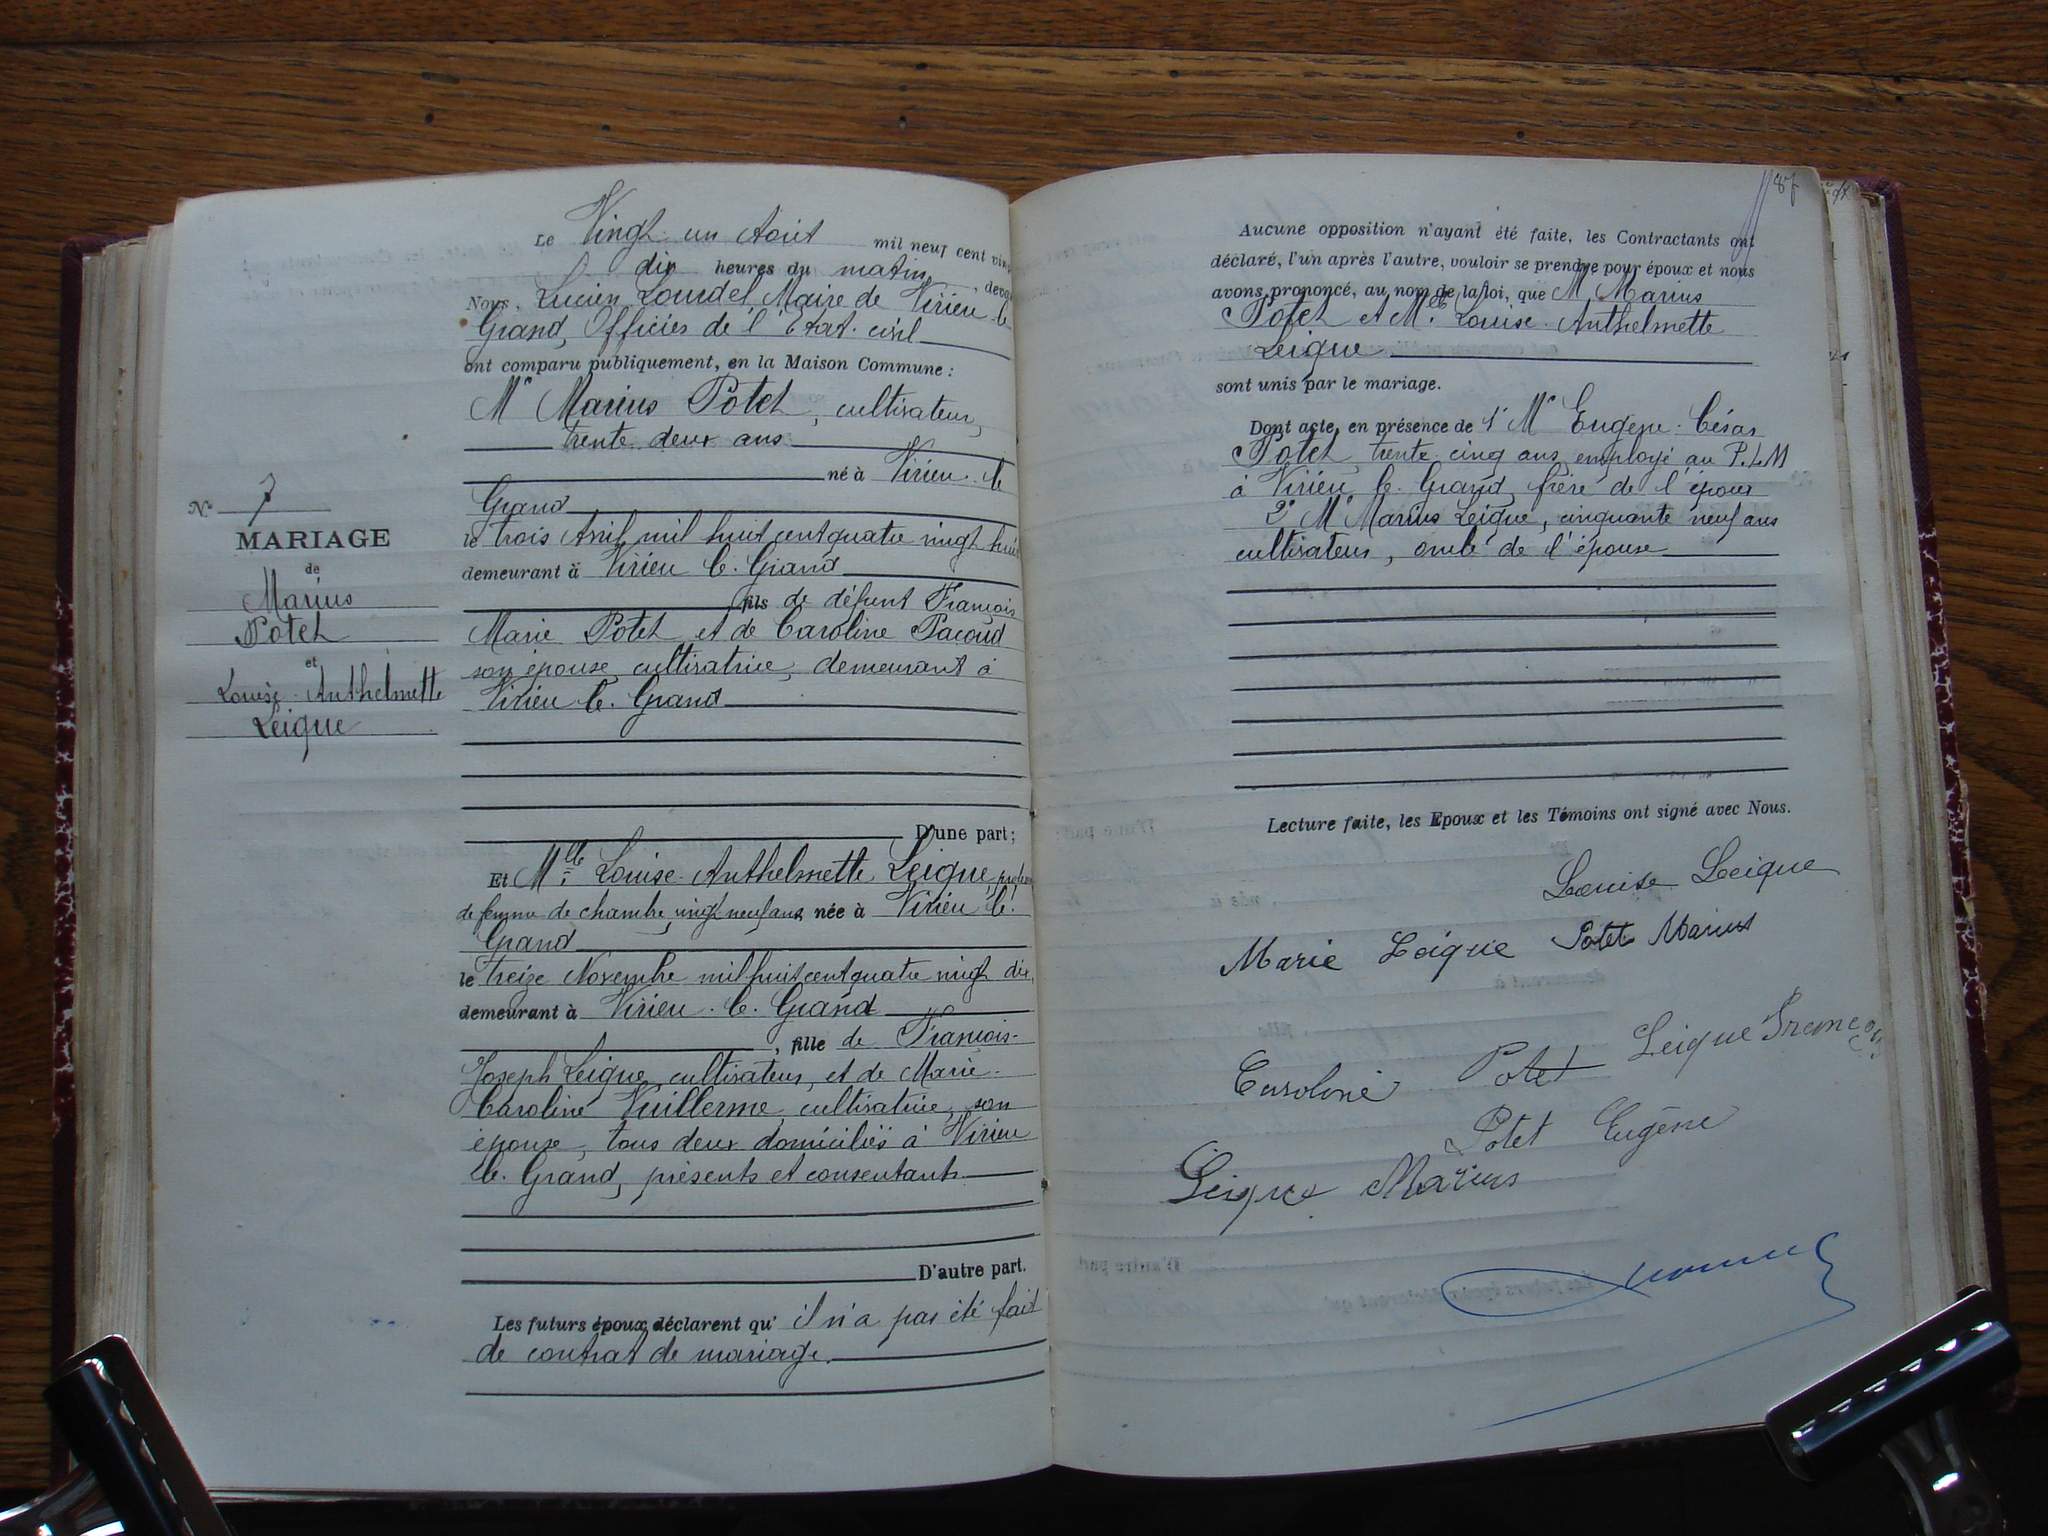 Le Vingt un Août mil neuf cent vingt
dix heures du matin, devant
Nous, Lucien Lourdel, Maire de Virieu-le-
Grand, Officier de l'Etat-civil
ont comparu publiquement, en la Maison Commune :
Mr Marius Potet, cultivateur,
trente-deux ans
né à Virieu-le-
Grand
le trois Avril mil huit cent quatre vingt huit
demeurant à Virieu-le-Grand
fils de défunt François
Marie Potet et de Caroline Pacoud
son épouse, cultivatrice, demeurant à
Virieu-le-Grand
N° 7
MARIAGE
de
Marius
Potet
et
Louise-Anthelmette
Leigue
D'une part ;
Et Mlle Louise-Anthelmette Leigue,
de femme de chambre, vingt neuf ans née à Virieu-le-
Grand
le treize Novembre mil huit cent quatre vingt dix,
demeurant à Virieu-le-Grand
, fille de François-
Joseph Leigue, cultivateur, et de Marie-
Caroline Vuillerme, cultivatrice, son
épouse, tous deux domiciliés à Virieu
le-Grand, présents et consentants
D'autre part.
Les futurs époux déclarent qu' il n'a pas été fait
de contrat de mariage.
87
Aucune opposition n'ayant été faite, les Contractants ont
déclaré, l'un après l'autre, vouloir se prendre pour époux et nous
avons prononcé, au nom de la loi, que Mr Marius
Potet et Mlle Louise-Anthelmette
Leigue
sont unis par le mariage.
Dont acte, en présence de 1° Mr Eugène-César
Potet, trente-cinq ans, employé au P.L.M
à Virieu-le-Grand, frère de l'époux
2° Mr Marius Leigue, cinquante neuf ans
cultivateur, oncle de l'épouse
Lecture faite, les Epoux et les Témoins ont signé avec Nous.
Louise Leigue
Marie Leigue Potet Marius
Caroline Potet Leigue François
Potet Eugène
Leigue Marius